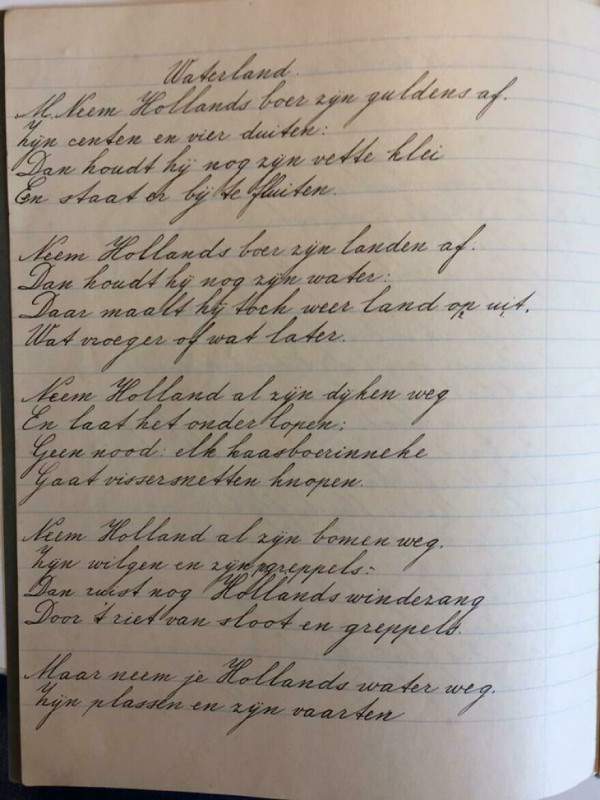 Waterland.
M. Neem Hollands boer zijn guldens af.
Zijn centen en vier duiten:
Dan houdt hij nog zijn vette klei
En staat er bij te fluiten.
Neem Hollands boer zijn landen af.
Dan houdt hij nog zijn water:
Daar maalt hij toch weer land op uit.
Wat vroeger of wat later.
Neem Holland al zijn dijken weg
En laat het onder lopen;
Geen nood: elk kaasboerinneke
Gaat vissersnetten knopen.
Neem Holland al zijn bomen weg.
Zijn wilgen en zijn greppels:
Dan ruist nog Hollands windezang
Door 't riet van sloot en greppels.
Maar neem je Hollands water weg.
Zijn plassen en zijn vaarten